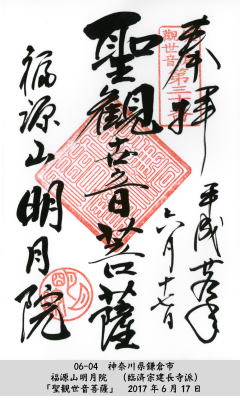 奉拝
觀世音第三十番
平成廿九年
六月十七日
聖観世音菩薩
福源山明月院
06-04 神奈川県鎌倉市
福源山明月院 (臨済宗建長寺派)
「聖観世音菩薩」 2017年6月17日